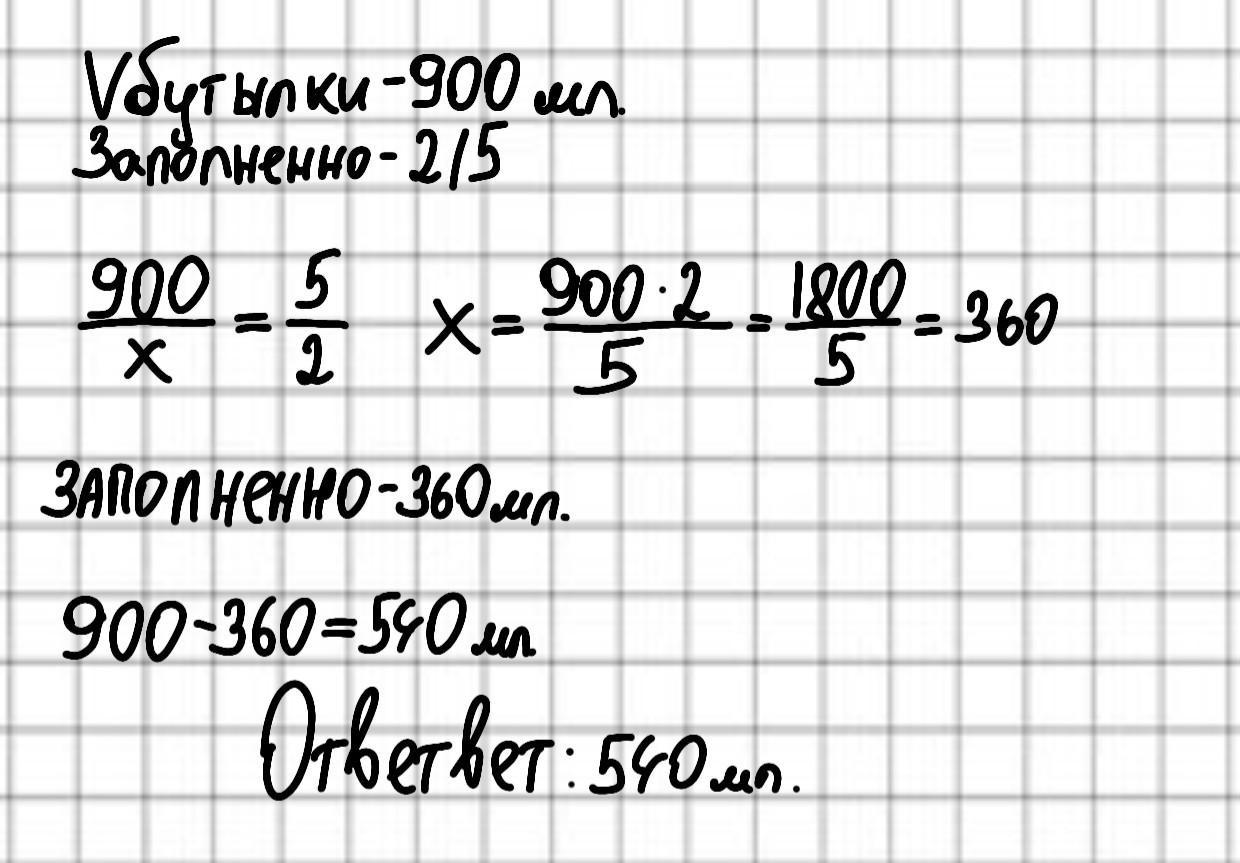 Vбутылки-900 мл.
Заполненно-2/5
900/x = 5/2 x = 900·2/5 = 1800/5 = 360
ЗАПОЛНЕННО-360мл.
900-360=540мл.
Ответвет: 540мл.